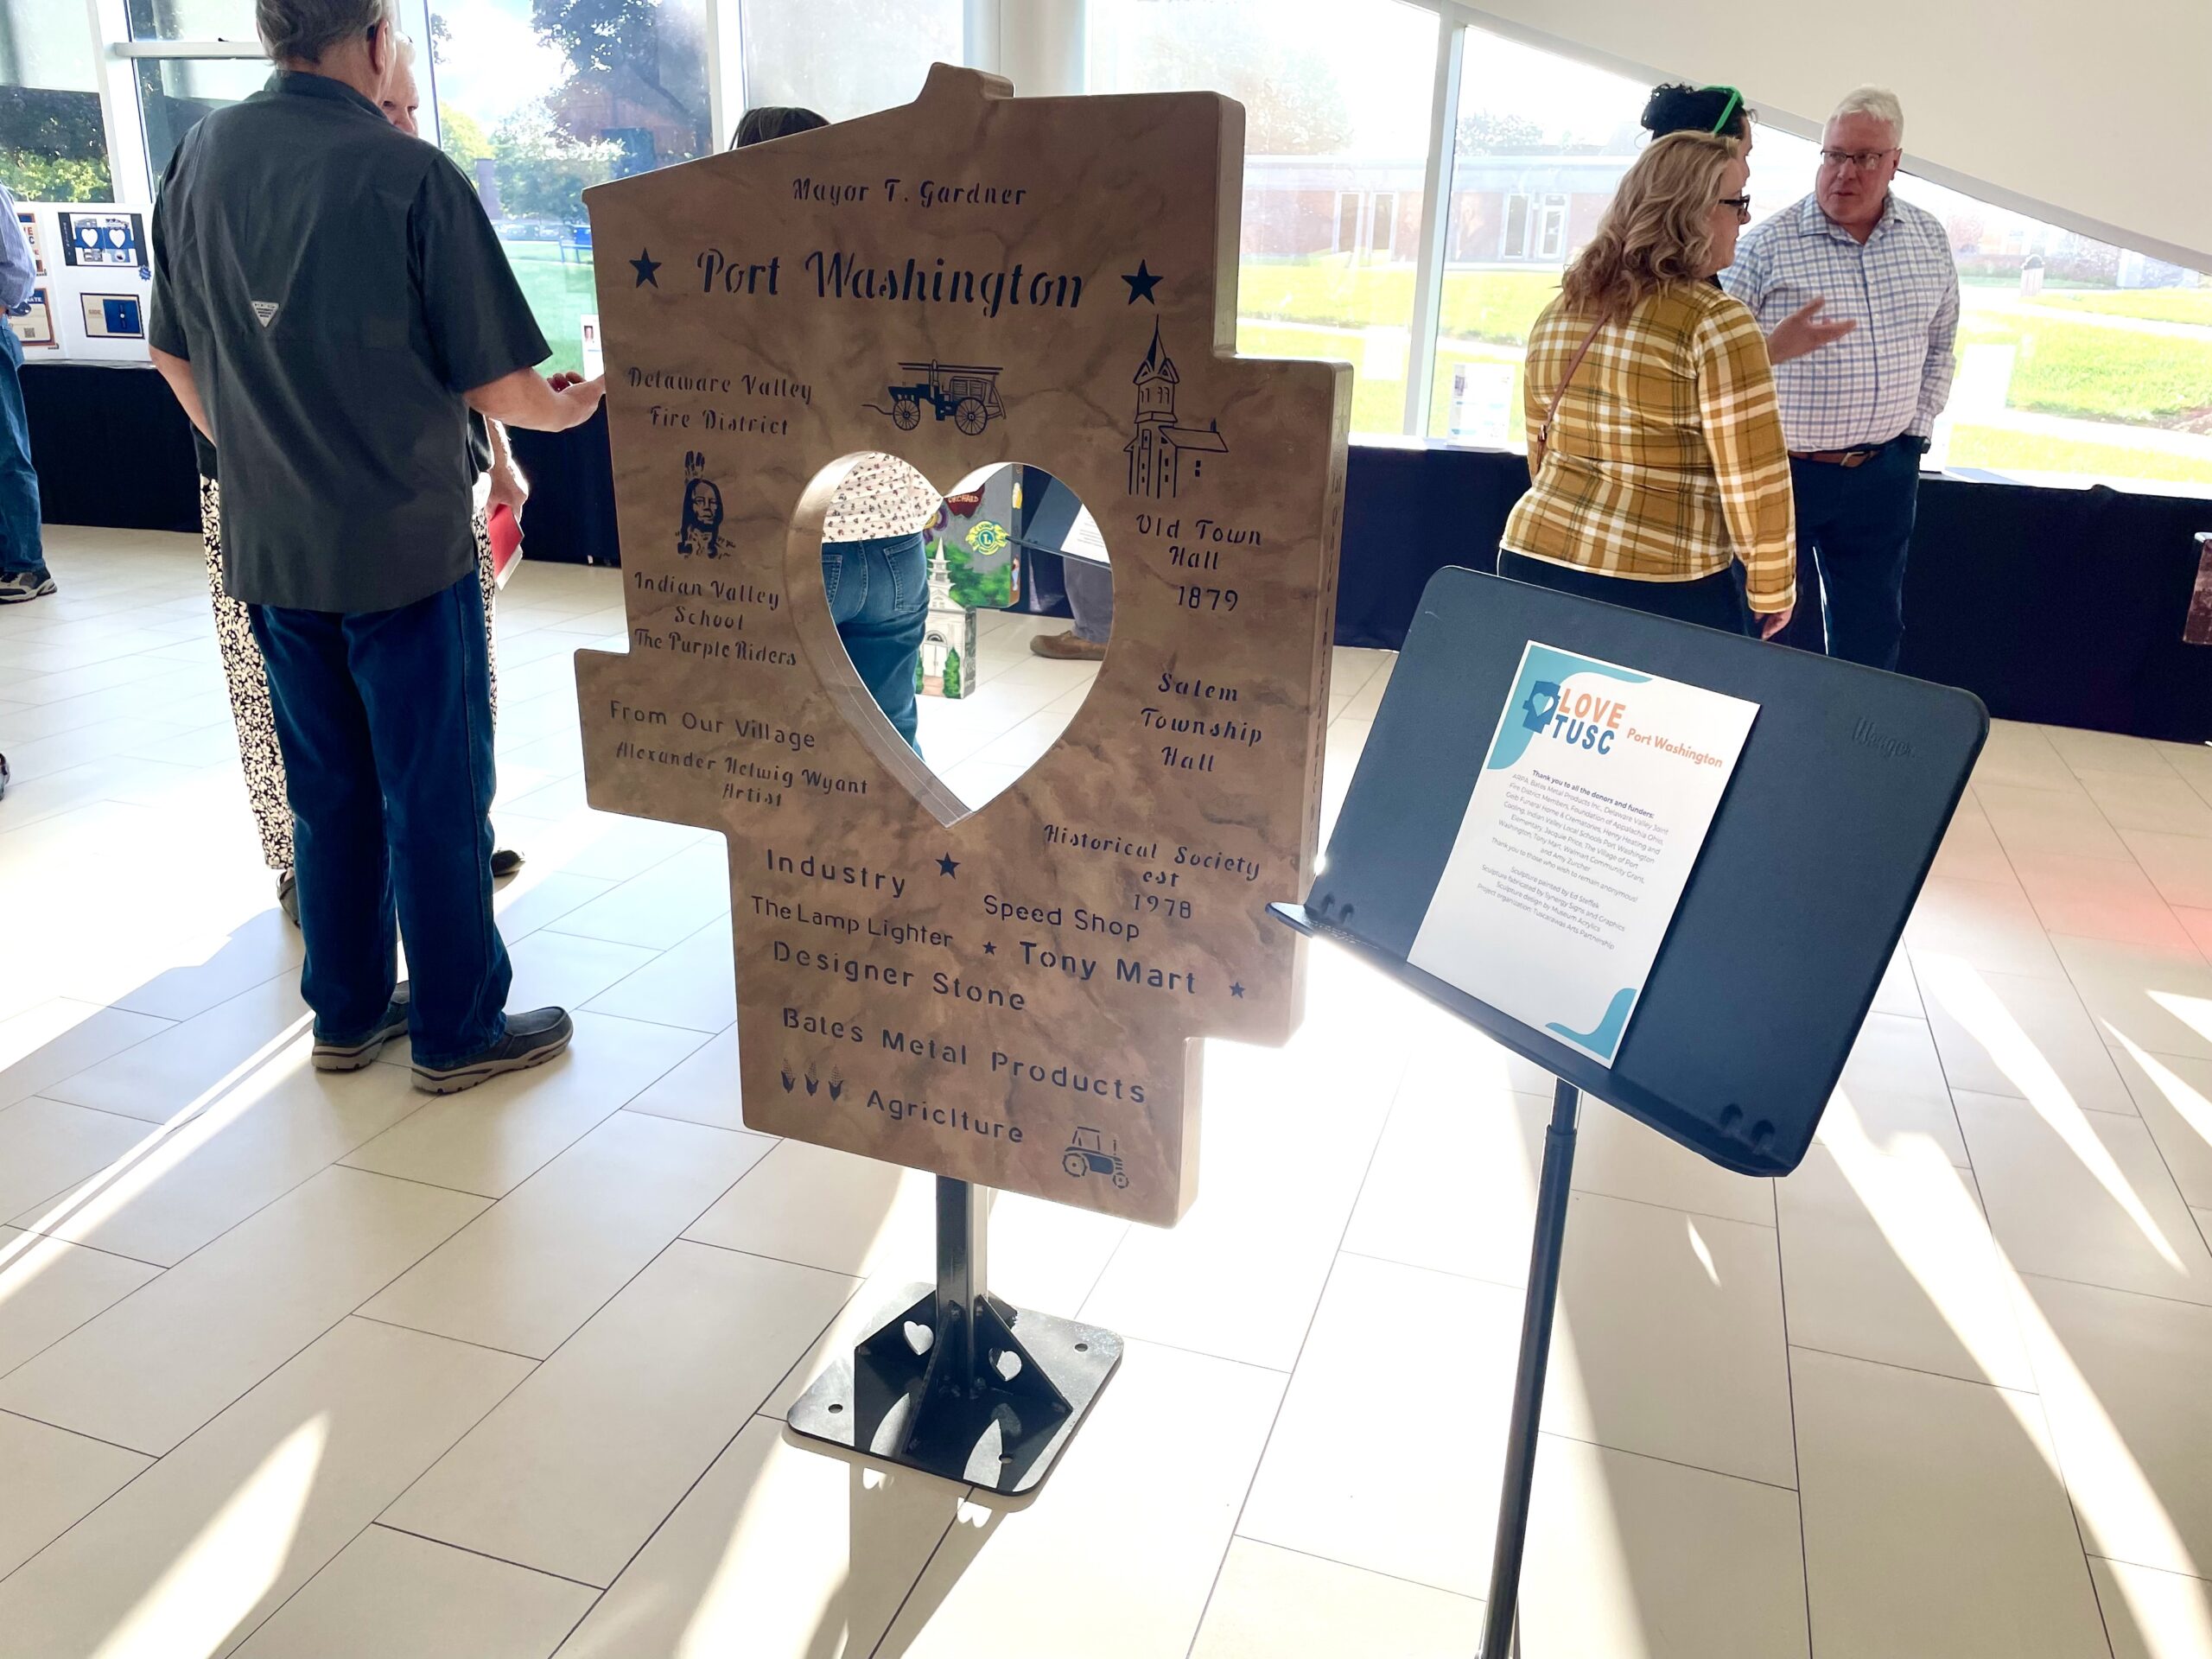 Mayor T. Gardner
Port Washington
Delaware Valley
Fire District
Indian Valley
School
The Purple Riders
Old Town
Hall
1879
From Our Village
Alexander Helwig Wyant
Artist
Salem
Township
Hall
Historical Society
est
1978
Industry
The Lamp Lighter
Speed Shop
Designer Stone
Tony Mart
Bates Metal Products
Agriclture
LOVE
TUSC
Port Washington
Thank you to all the donors and funders:
ARPA, Bates Metal Products Inc., Delaware Valley Joint
Fire District Members, Foundation of Appalachia Ohio,
Geib Funeral Home & Crematories, Henry Heating and
Cooling, Indian Valley Local Schools Port Washington
Elementary, Jacquie Price, The Village of Port
Washington, Tony Mart, Walmart Community Grant,
and Amy Zurcher
Thank you to those who wish to remain anonymous!
Sculpture painted by Ed Steffek
Sculpture fabricated by Synergy Signs and Graphics
Sculpture design by Museum Acrylics
Project organization: Tuscarawas Arts Partnership
Wenger
ORCHARD
L